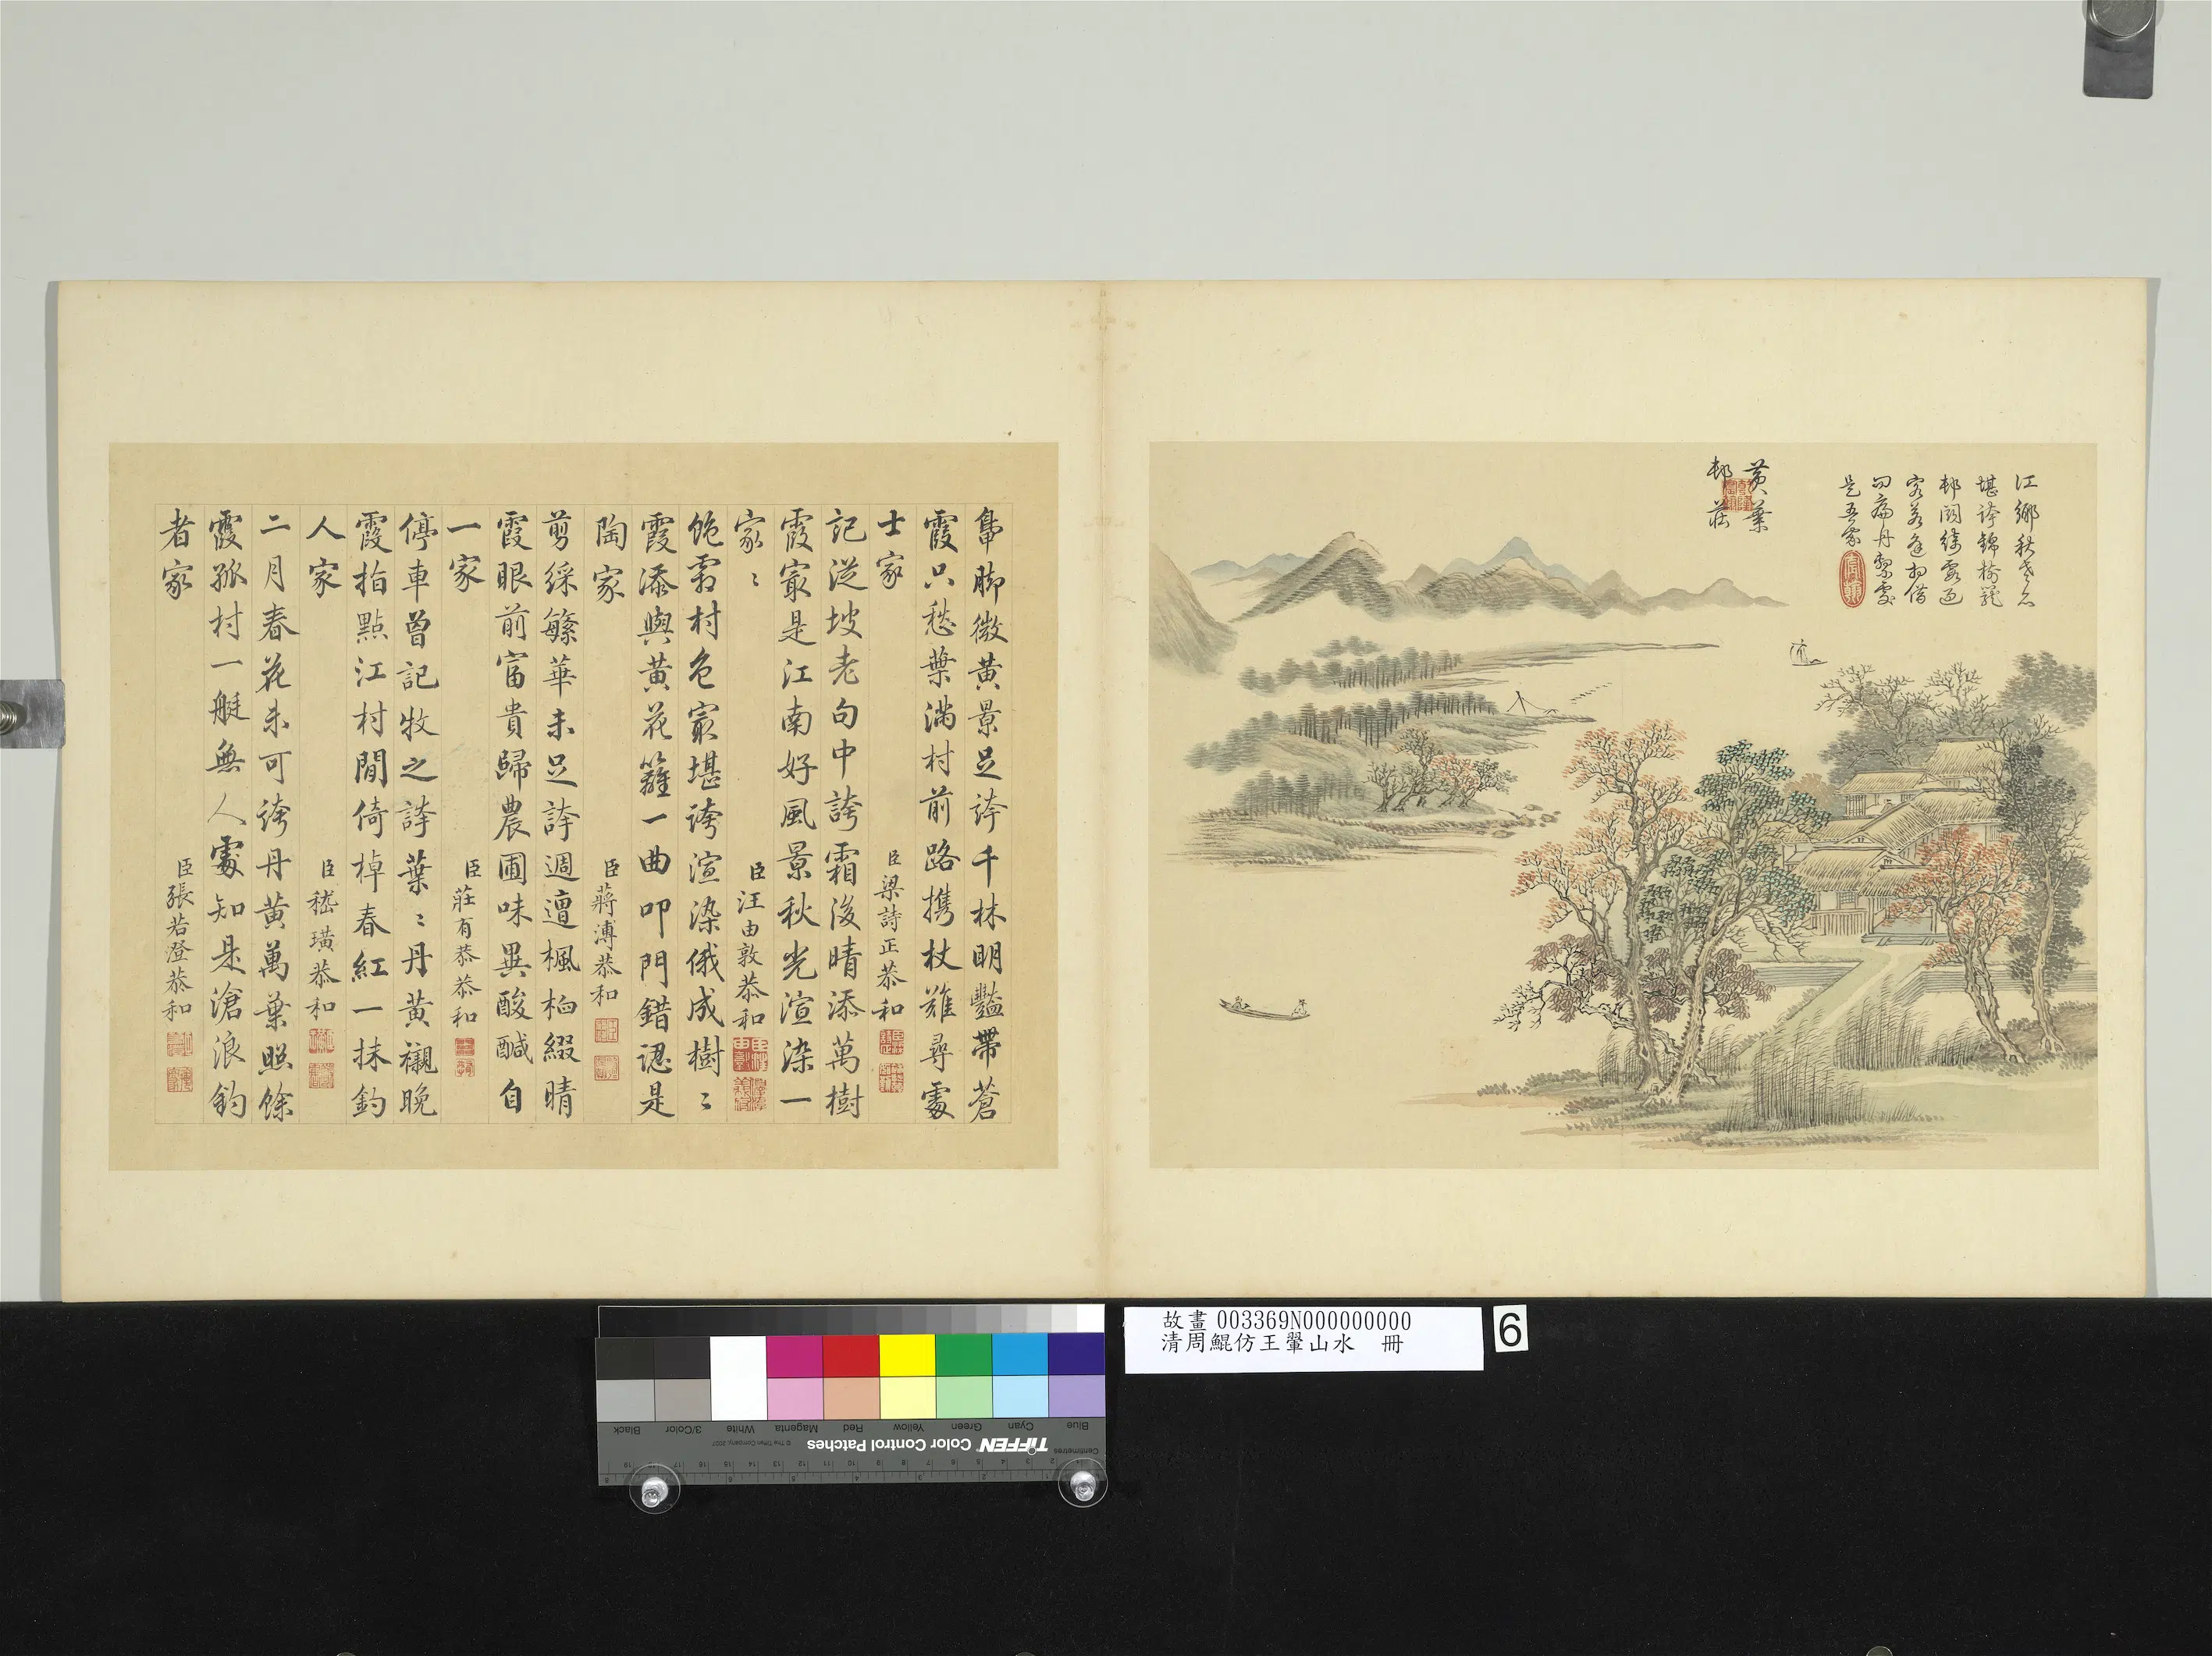 江鄉秋老名
堪誇錦樹籠
邨閟綺霞
客若逢相借
問痛丹裂處
是吾家
黃葉
邨莊
鳧脚微黃景足誇千林明豔帶蒼
霞只愁葉滿村前路攜杖難尋處
士家
臣梁詩正恭和
記從坡老句中誇霜後晴添萬樹
霞最是江南好風景秋光渲染一
家〻
臣汪由敦恭和
飽霜村色最堪誇渲染俄成樹〻
霞添與黃花籬一曲叩門錯認是
陶家
臣蔣溥恭和
剪綵繁華未足誇週遭楓桕綴晴
霞眼前富貴歸農圃味異酸醎自
一家
臣莊有恭恭和
停車曾記牧之誇葉〻丹黃襯晚
霞指點江村閒倚棹春紅一抹釣
人家
臣嵇璜恭和
二月春花未可誇丹黃萬葉照餘
霞孤村一艇無人處知是滄浪釣
者家
臣張若澄恭和
故畫 003369N000000000
清周鯤仿王翬山水 冊
6
TIFFEN Color Control Patches
© The Tiffen Company, 2007
Centimetres
Blue Cyan Green Yellow Red Magenta White 3/Color Black